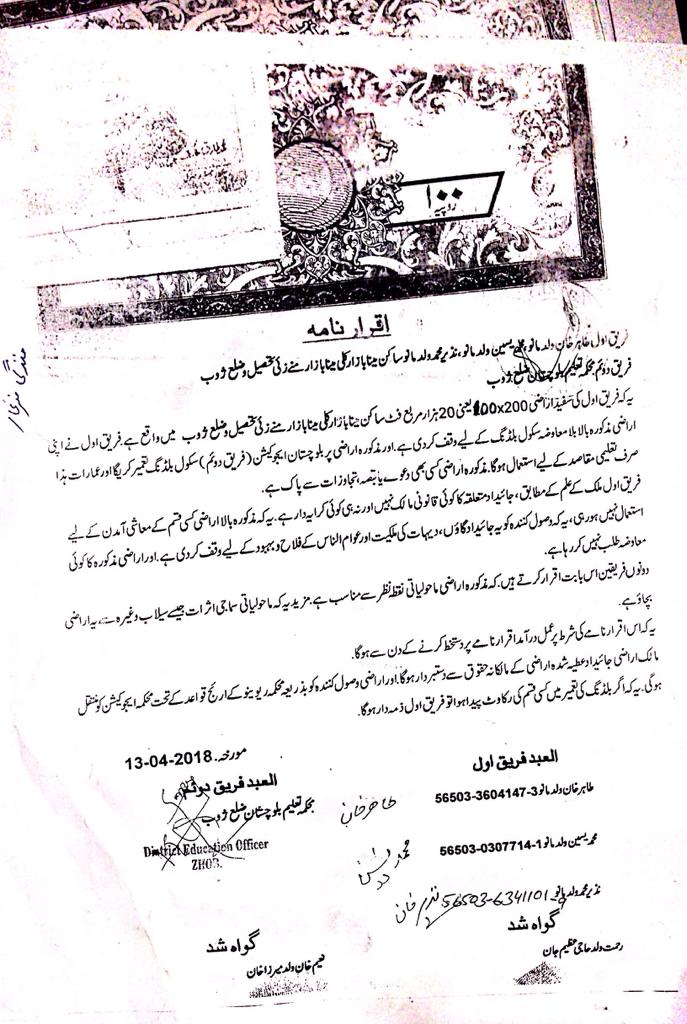 ۱۰۰
روپیہ
اقرار نامہ
فریق اول طاہر خان ولد مانو، محمد یسین ولد مانو، نذیر محمد ولد مانو ساکن مینا بازار کلی مینا بازار منے زئی تحصیل وضلع ژوب
فریق دوئم: محکمہ تعلیم بلوچستان ضلع ژوب
یہ کہ فریق اول کی سفیذ اراضی 100x200 یعنی 20 ہزار مربع فٹ ساکن مینا بازار کلی مینا بازار منے زئی تحصیل وضلع ژوب میں واقع ہے۔ فریق اول نے اپنی
اراضی مذکورہ بالا بلا معاوضہ سکول بلڈنگ کے لیے وقف کر دی ہے۔ اور مذکورہ اراضی پر بلوچستان ایجوکیشن (فریق دوئم) سکول بلڈنگ تعمیر کریگا اور عمارات ہذا
صرف تعلیمی مقاصد کے لیے استعمال ہوگا۔ مذکورہ اراضی کسی بھی دعوے یا قبضہ، تجاوزات سے پاک ہے۔
فریق اول ملک کے علم کے مطابق، جائیداد متعلقہ کا کوئی قانونی مالک نہیں اور نہ ہی کوئی کرایہ دار ہے۔ یہ کہ مذکورہ بالا اراضی کسی قسم کے معاشی آمدن کے لیے
استعمال نہیں ہو رہی، یہ کہ وصول کنندہ کو یہ جائیداد گاؤں، دیہات کی ملکیت اور عوام الناس کے فلاح و بہبود کے لیے وقف کر دی ہے۔ اور اراضی مذکورہ کا کوئی
معاوضہ طلب نہیں کر رہا ہے۔
دونوں فریقین اس بابت اقرار کرتے ہیں۔ کہ مذکورہ اراضی ماحولیاتی نقطہ نظر سے مناسب ہے۔ مزید یہ کہ ماحولیاتی سماجی اثرات جیسے سیلاب وغیرہ سے، یہ اراضی
بچاؤ ہے۔
یہ کہ اس اقرار نامے کی شرط پر عمل درآمد اقرار نامے پر دستخط کرنے کے دن سے ہوگا۔
مالک اراضی جائیداد عطیہ شدہ اراضی کے مالکانہ حقوق سے دستبردار ہوگا۔ اور اراضی وصول کنندہ کو بذریعہ محکمہ ریوینو کے رائج قواعد کے تحت محکمہ ایجوکیشن کو منتقل
ہوگی۔ یہ کہ اگر بلڈنگ کی تعمیر میں کسی قسم کی رکاوٹ پیدا ہوا تو فریق اول ذمہ دار ہوگا۔
مورخہ 13-04-2018
العبد فریق اول
طاہر خان ولد مانو 56503-3604147-3
طاہر خان
محمد یسین ولد مانو 56503-0307714-1
نذیر محمد ولد مانو 56503-6341101
العبد فریق دوئم
محکمہ تعلیم بلوچستان ضلع ژوب
District Education Officer
ZHOB.
گواہ شد
رحمت ولد حاجی عظیم جان
گواہ شد
نعیم خان ولد میرزا خان